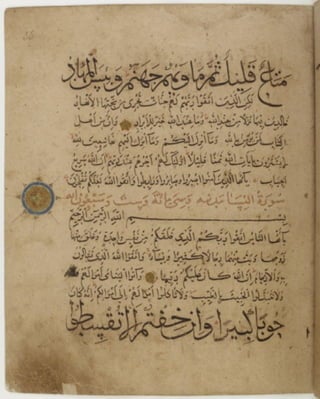 متاع قليل ثم ماويهم جهنم وبيس المهاد
لكن الذين اتقوا ربهم لهم جنات تجري من تحتها الانهار
خالدين فيها نزلا من عند الله وما عند الله خير للابرار وان من اهل
الكتاب لمن يؤمن بالله وما انزل اليكم وما انزل اليهم خاشعين لله
لا يشترون بايات الله ثمنا قليلا اوليك لهم اجرهم عند ربهم ان الله سريع
الحساب يا ايها الذين آمنوا اصبروا وصابروا ورابطوا واتقوا الله لعلكم تفلحون
سورة النساء مدنية وهي مائة وست وسبعون
بسم الله الرحمن الرحيم
يا ايها الناس اتقوا ربكم الذي خلقكم من نفس واحدة وخلق منها
زوجها وبث منهما رجالا كثيرا ونساء واتقوا الله الذي تساءلون
به والارحام ان الله كان عليكم رقيبا وآتوا اليتامى اموالهم
ولا تتبدلوا الخبيث بالطيب ولا تاكلوا اموالهم الى اموالكم انه كان
حوبا كبيرا وان خفتم الا تقسطوا